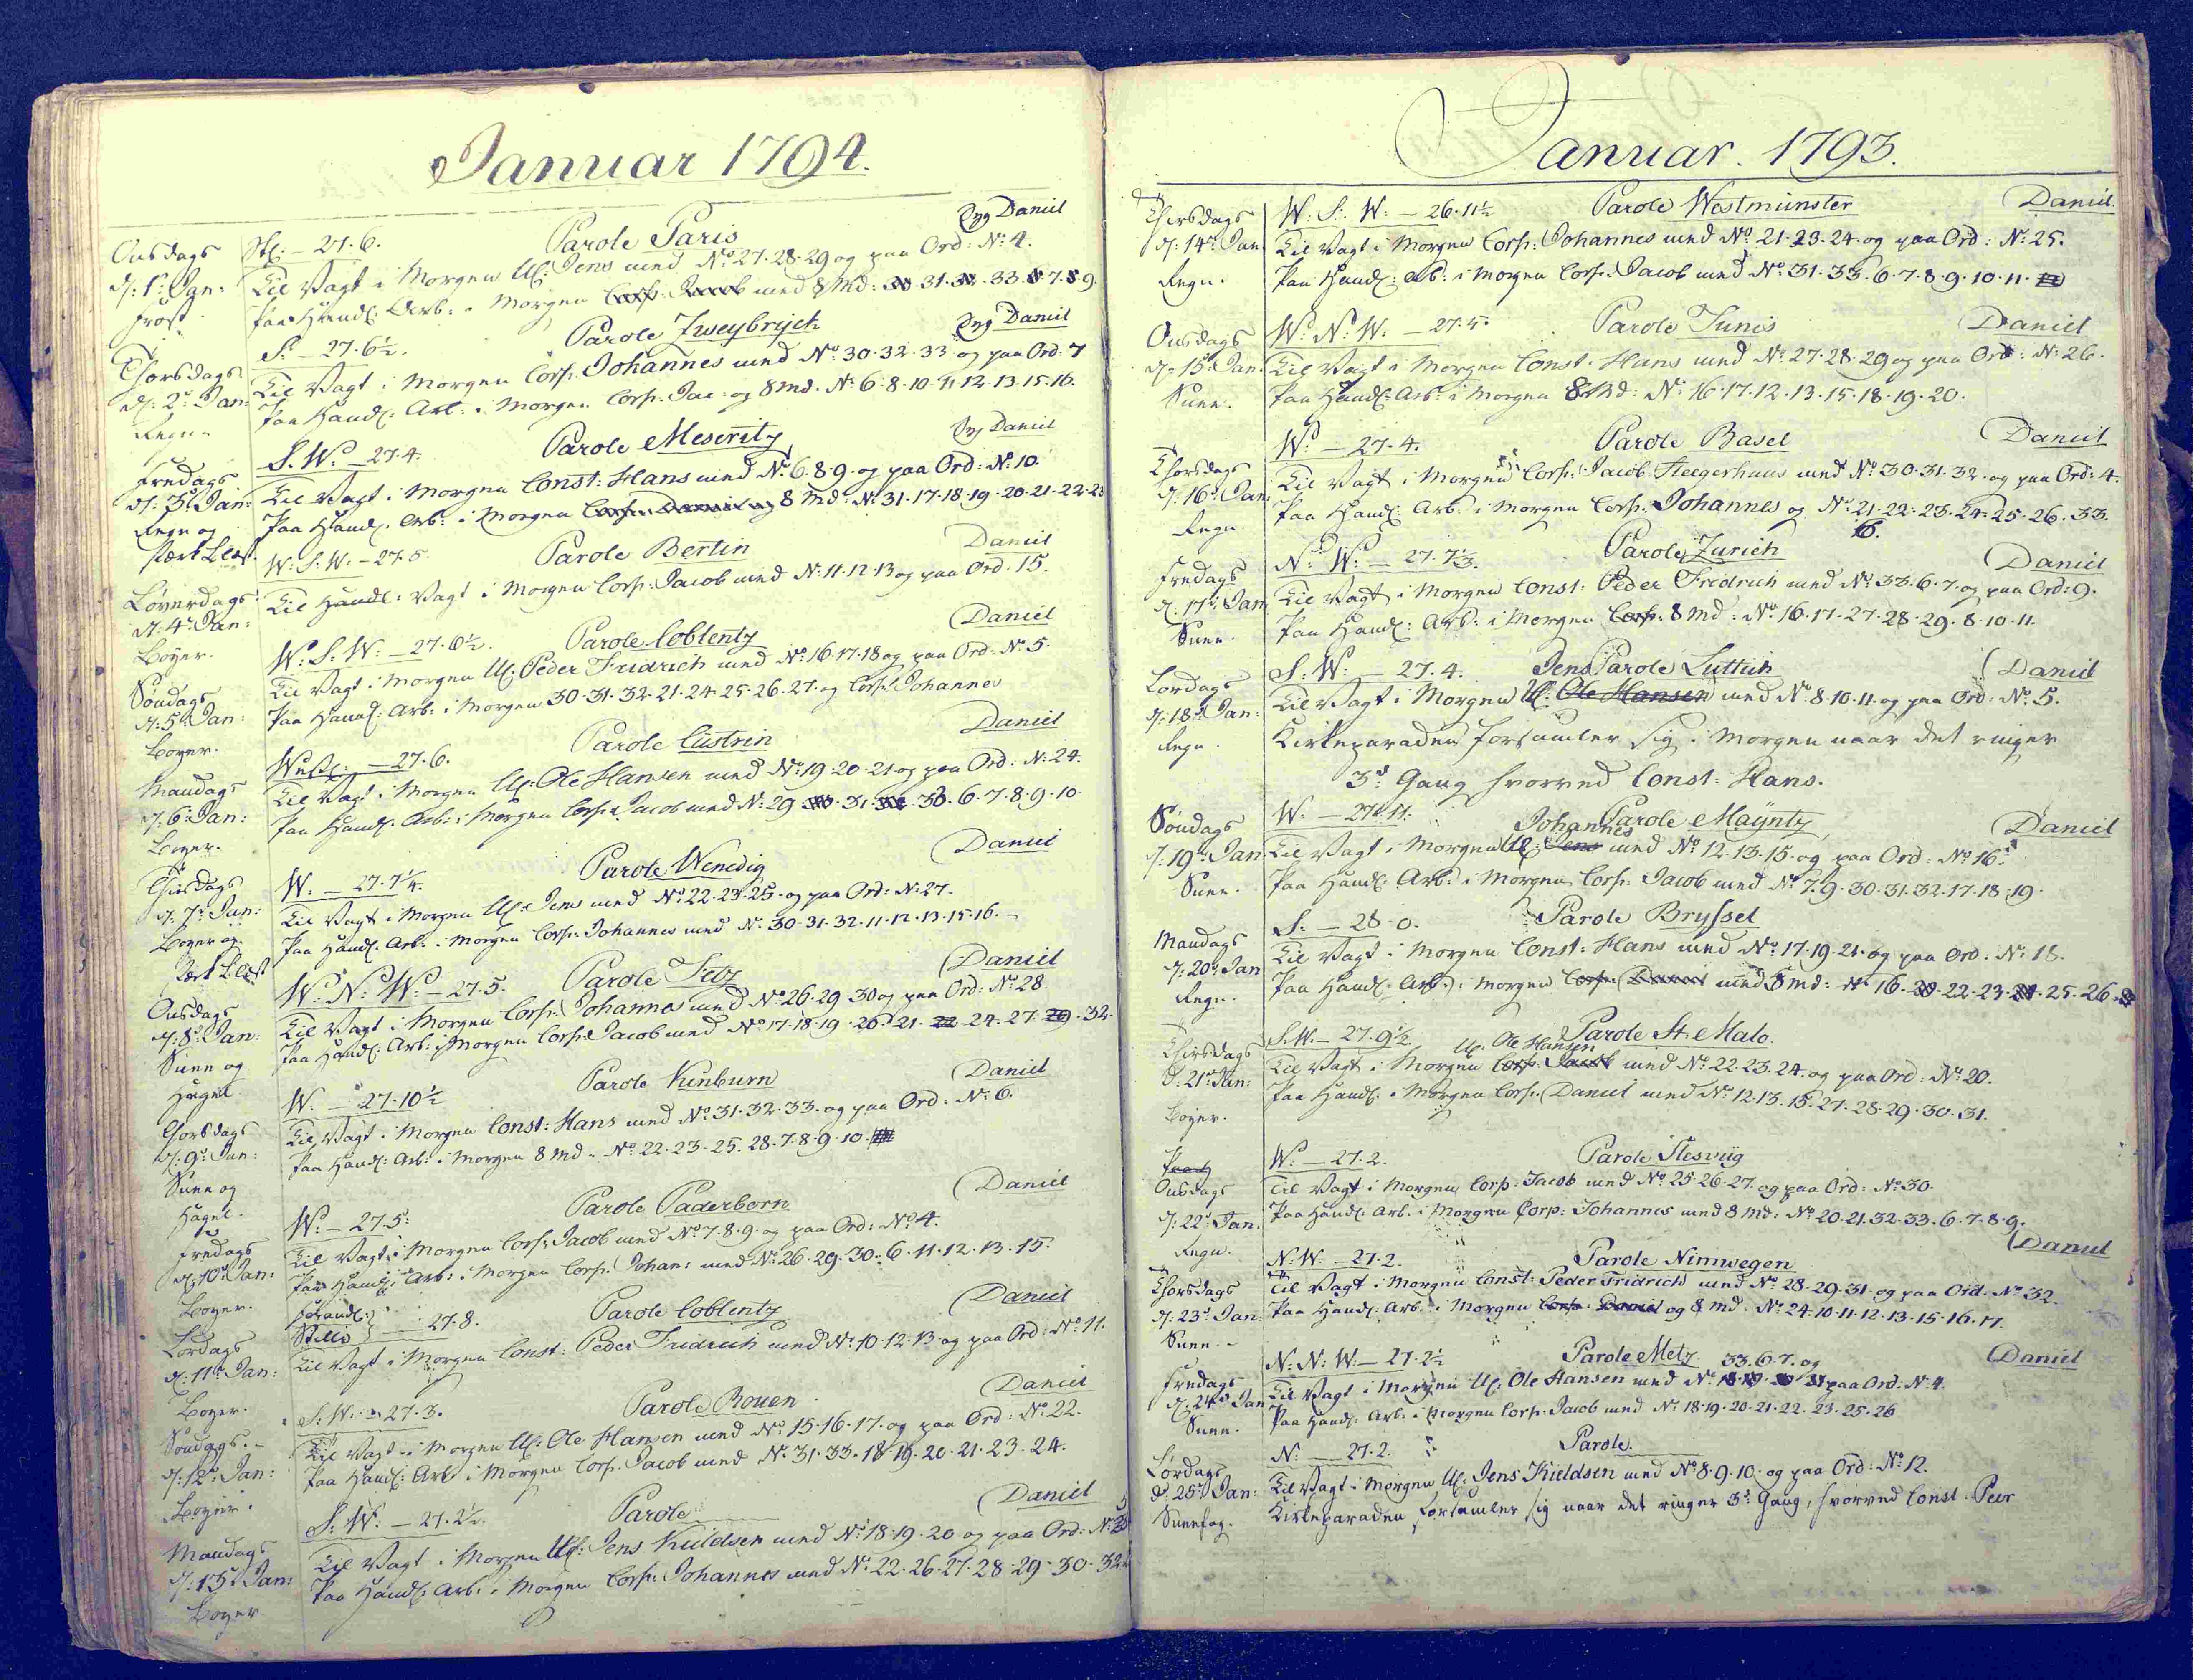 Januar 1794.
Onsdags
d: 1te Jan:
Frost
Stl: — 27. 6.
Parole Paris
Daniel
Til Vagt i Morgen Uf: Jens med No 27. 28. 29 og paa Ord: No 4.
Paa Handl: Arb: i Morgen Corp: Jacob med 8 Md: 31. 33. 7. 9.
Thorsdags
d: 2d Jan:
Regn
S: — 27. 6½.
Parole Zweybryck
Daniel
Til Vagt i Morgen Corp: Johannes med No 30. 32. 33 og paa Ord: 7
Paa Handl: Arb: i Morgen Corp: Jac: og 8 md. No 6. 8. 10. 11. 12. 13. 15. 16.
Fredags
d: 3d Jan:
Regn og
stærk Blæst.
S. W: 27. 4.
Parole Meseritz
Daniel
Til Vagt i Morgen Const: Hans med No 6. 8. 9. og paa Ord: No 10.
Paa Handl. Arb: i Morgen Corp: Daniel og 8 Md: No 31. 17. 18. 19. 20. 21. 22. 23
Løverdags
d: 4d Jan:
Boyer.
W: S: W: — 27. 5.
Parole Bertin
Daniel
Til Handl: Vagt i Morgen Corp: Jacob med No 11. 12. 13 og paa Ord. 15.
Søndags
d: 5d Jan:
Boyer.
W: S: W: — 27. 6½.
Parole Coblentz
Daniel
Til Vagt i Morgen Uf: Peder Fridrich med No 16. 17. 18 og paa Ord: No 5.
Paa Handl: Arb: i Morgen 30. 31. 32. 21. 24. 25. 26. 27. og Corp: Johannes
Mandags
d: 6d Jan:
Boyer.
Westl: — 27. 6.
Parole Cüstrin
Daniel
Til Vagt i Morgen Uf: Ole Hansen med No 19. 20. 21 og paa Ord. No 24.
Paa Handl: Arb: i Morgen Corp: Jacob med No 29. 31. 33. 6. 7. 8. 9. 10.
Thirsdags
d: 7d Jan:
Boyer og
stærk Blæst
W. — 27. 7¼.
Parole Wenedig
Daniel
Til Vagt i Morgen Uf: Jens med No 22. 23. 25. og paa Ord: No 27.
Paa Handl. Arb: i Morgen Corp: Johannes med No 30. 31. 32. 11. 12. 13. 15. 16. —
Onsdags
d: 8d Jan:
Snee og
Hagel
W: N: W: — 27. 5.
Parole Fetz
Daniel
Til Vagt i Morgen Corp: Johannes med No 26. 29. 30 og paa Ord: No 28
Paa Handl: Arb: i Morgen Corp: Jacob med No 17. 18. 19. 20. 21. 22. 24. 27. 29. 32.
Thorsdags
d: 9d Jan:
Snee og
Hagel.
W. — 27. 10½
Parole Kinburn
Daniel
Til Vagt i Morgen Const: Hans med No 31. 32. 33. og paa Ord: No 6.
Paa Handl: Arb: i Morgen 8 Md. No 22. 23. 25. 28. 7. 8. 9. 10.
Fredags
d: 10d Jan:
Boyer.
W: — 27. 5:
Parole Paderborn
Daniel
Til Vagt i Morgen Corp: Jacob med No 7. 8. 9. og paa Ord: No 4.
Paa Handl: Arb: i Morgen Corp: Johan: med No 26. 29. 30. 6. 11. 12. 13. 15.
Lørdags
d: 11d Jan:
Boyer.
Stille — 27. 8.
Parole Coblentz
Daniel
Til Vagt i Morgen Const: Peder Fridrich med No 10. 12. 13. og paa Ord: No 11.
Søndags.
d: 12d Jan:
Boyer.
S: W: — 27. 3.
Parole Rouen
Daniel
Til Vagt i Morgen Uf: Ole Hansen med No 15. 16. 17. og paa Ord: No 22.
Paa Handl: Arb: i Morgen Corp. Jacob med No 31. 33. 18. 19. 20. 21. 23. 24.
Mandags
d: 13d Jan:
Boyer.
S: W: — 27. 2½.
Parole
Daniel
Til Vagt i Morgen Uf: Jens Kieldsen med No 18. 19. 20 og paa Ord: No
Paa Handl: Arb: i Morgen Corp: Johannes med No 22. 26. 27. 28. 29. 30. 32.
Januar. 1793.
Thirsdags
d: 14d Jan:
Regn.
W: S: W: — 26. 11½
Parole Westmünster
Daniel
Til Vagt i Morgen Corp: Johannes med No 21. 23. 24. og paa Ord: No 25.
Paa Handl: Arb: i Morgen Corp: Jacob med No 31. 33. 6. 7. 8. 9. 10. 11. 12
Onsdags
d: 15d Jan.
Snee.
W: N: W: — 27. 5.
Parole Tunis
Daniel
Til Vagt i Morgen Const. Hans med No 27. 28. 29 og paa Ord: No 26.
Paa Handl: Arb: i Morgen 8 Md: No 16. 17. 12. 13. 15. 18. 19. 20.
Thorsdags
d: 16d Jan
Regn.
W: — 27. 4.
Parole Basel
Daniel
Til Vagt i Morgen Corp: Jacob Steegerhuus med No 30. 31. 32. og paa Ord: 4.
Paa Handl: Arb: i Morgen Corp: Johannes og No 21. 22. 23. 24. 25. 26. 33.
6.
Fredags
d. 17d Jan
Snee.
N: W: — 27. 7⅓.
Parole Zurich
Daniel
Til Vagt i Morgen Const: Peder Fridrich med No 33. 6. 7. og paa Ord: 9.
Paa Handl: Arb: i Morgen Corp: 8 Md: No 16. 17. 27. 28. 29. 8. 10. 11.
Lørdags
d: 18d Jan:
Regn.
S: W: — 27. 4.
Jens
Parole Luttich
Daniel
Til Vagt i Morgen Uf: Ole Hansen med No 8. 10. 11. og paa Ord. No 5.
Kirkeparaden forsamler sig i Morgen naar det ringer
3d Gang hvorved Const: Hans.
Søndags
d: 19d Jan
Snee.
W: — 27. 11.
Johannes
Parole Mayntz
Daniel
Til Vagt i Morgen Uf: Jens med No 12. 13. 15. og paa Ord: No 16.
Paa Handl: Arb: i Morgen Corp: Jacob med No 7. 9. 30. 31. 32. 17. 18. 19.
Mandags
d: 20d Jan
Regn.
S: — 28. 0.
Parole Bryssel
Til Vagt i Morgen Const: Hans med No 17. 19. 21. og paa Ord: No 18.
Paa Handl: Arb: i Morgen Corp: Daniel med 8 md: No 16. 20. 22. 23. 24. 25. 26.
Thirsdags
d: 21d Jan:
Boyer.
S. W. — 27. 9½
Uf: Ole Hansen
Parole St. Malo.
Til Vagt i Morgen Corp: Jacob med No 22. 23. 24. og paa Ord: No 20.
Paa Handl. i Morgen Corp: Daniel med No 12. 13. 15. 27. 28. 29. 30. 31.
Onsdags
d: 22d Jan.
Regn.
W: — 27. 2.
Parole Slesviig
Til Vagt i Morgen Corp: Jacob med No 25. 26. 27. og paa Ord: No 30.
Paa Handl: Arb. i Morgen Corp: Johannes med 8 Md: No 20. 21. 32. 33. 6. 7. 8. 9.
Thorsdags
d: 23d Jan:
Snee.
N: W: — 27. 2.
Parole Nimwegen
Daniel
Til Vagt i Morgen Const: Peder Fridrich med No 28. 29. 31. og paa Ord. No 32.
Paa Handl: Arb. i Morgen Corp: Daniel og 8 Md. No 24. 10. 11. 12. 13. 15. 16. 17.
Fredags
d. 24d Jan
Snee.
N: N: W: — 27. 2½
Parole Metz
33. 6. 7. og
Daniel
Til Vagt i Morgen Uf: Ole Hansen med No paa Ord: No 4.
Paa Handl: Arb. i Morgen Corp: Jacob med No 18. 19. 20. 21. 22. 23. 25. 26
Lørdags
d: 25d Jan:
Sneefog.
N: — 27. 2.
Parole.
Til Vagt i Morgen Uf: Jens Kieldsen med No 8. 9. 10. og paa Ord: No 12.
Kirkeparaden forsamler sig naar det ringer 3d Gang, hvorved Const. Peer